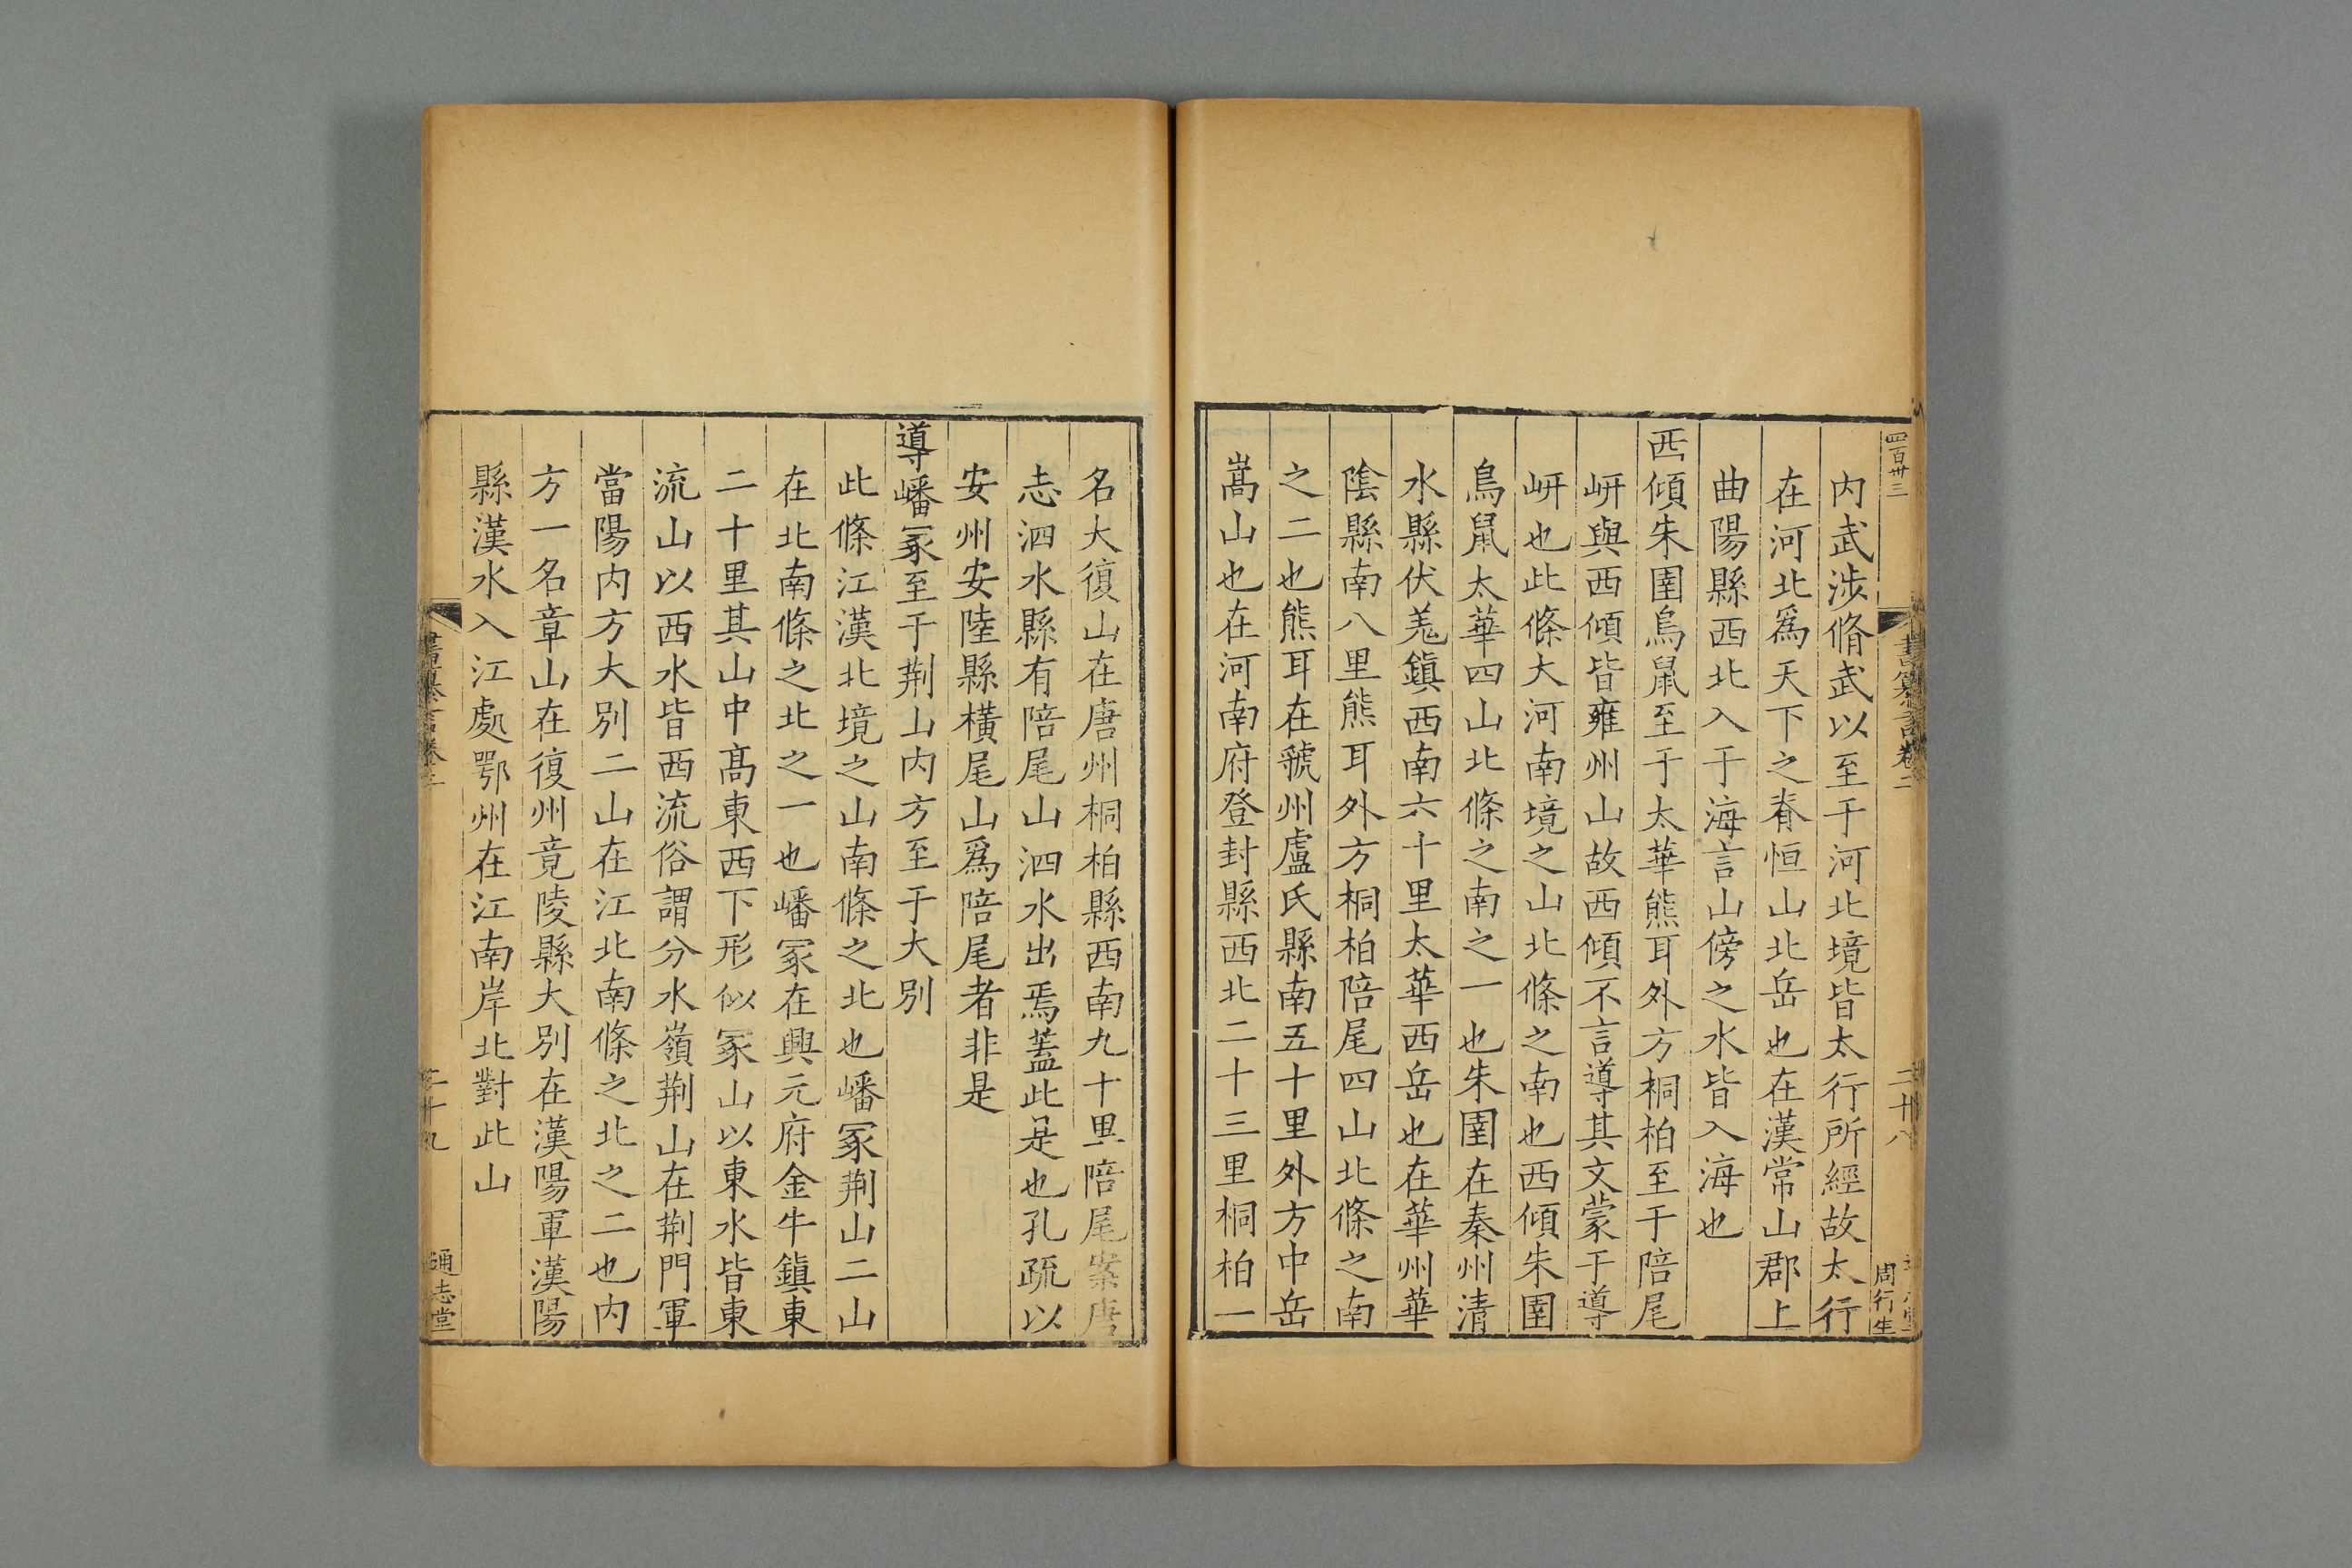 四百卅三
書纂言卷二
二十八
周行生
內武涉脩武以至于河北境皆太行所經故太行
在河北爲天下之脊恒山北岳也在漢常山郡上
曲陽縣西北入于海言山傍之水皆入海也
西傾朱圉鳥鼠至于太華熊耳外方桐柏至于陪尾
岍與西傾皆雍州山故西傾不言導其文蒙于導
岍也此條大河南境之山北條之南也西傾朱圉
鳥鼠太華四山北條之南之一也朱圉在秦州清
水縣伏羗鎮西南六十里太華西岳也在華州華
陰縣南八里熊耳外方桐柏陪尾四山北條之南
之二也熊耳在虢州盧氏縣南五十里外方中岳
嵩山也在河南府登封縣西北二十三里桐柏一
名大復山在唐州桐柏縣西南九十里陪尾案唐
志泗水縣有陪尾山泗水出焉蓋此是也孔疏以
安州安陸縣橫尾山爲陪尾者非是
導嶓冢至于荆山內方至于大別
此條江漢北境之山南條之北也嶓冢荆山二山
在北南條之北之一也嶓冢在興元府金牛鎮東
二十里其山中高東西下形似冢山以東水皆東
流山以西水皆西流俗謂分水嶺荆山在荆門軍
當陽內方大別二山在江北南條之北之二也內
方一名章山在復州竟陵縣大別在漢陽軍漢陽
縣漢水入江處鄂州在江南岸北對此山
書纂言卷二
二十九
通志堂